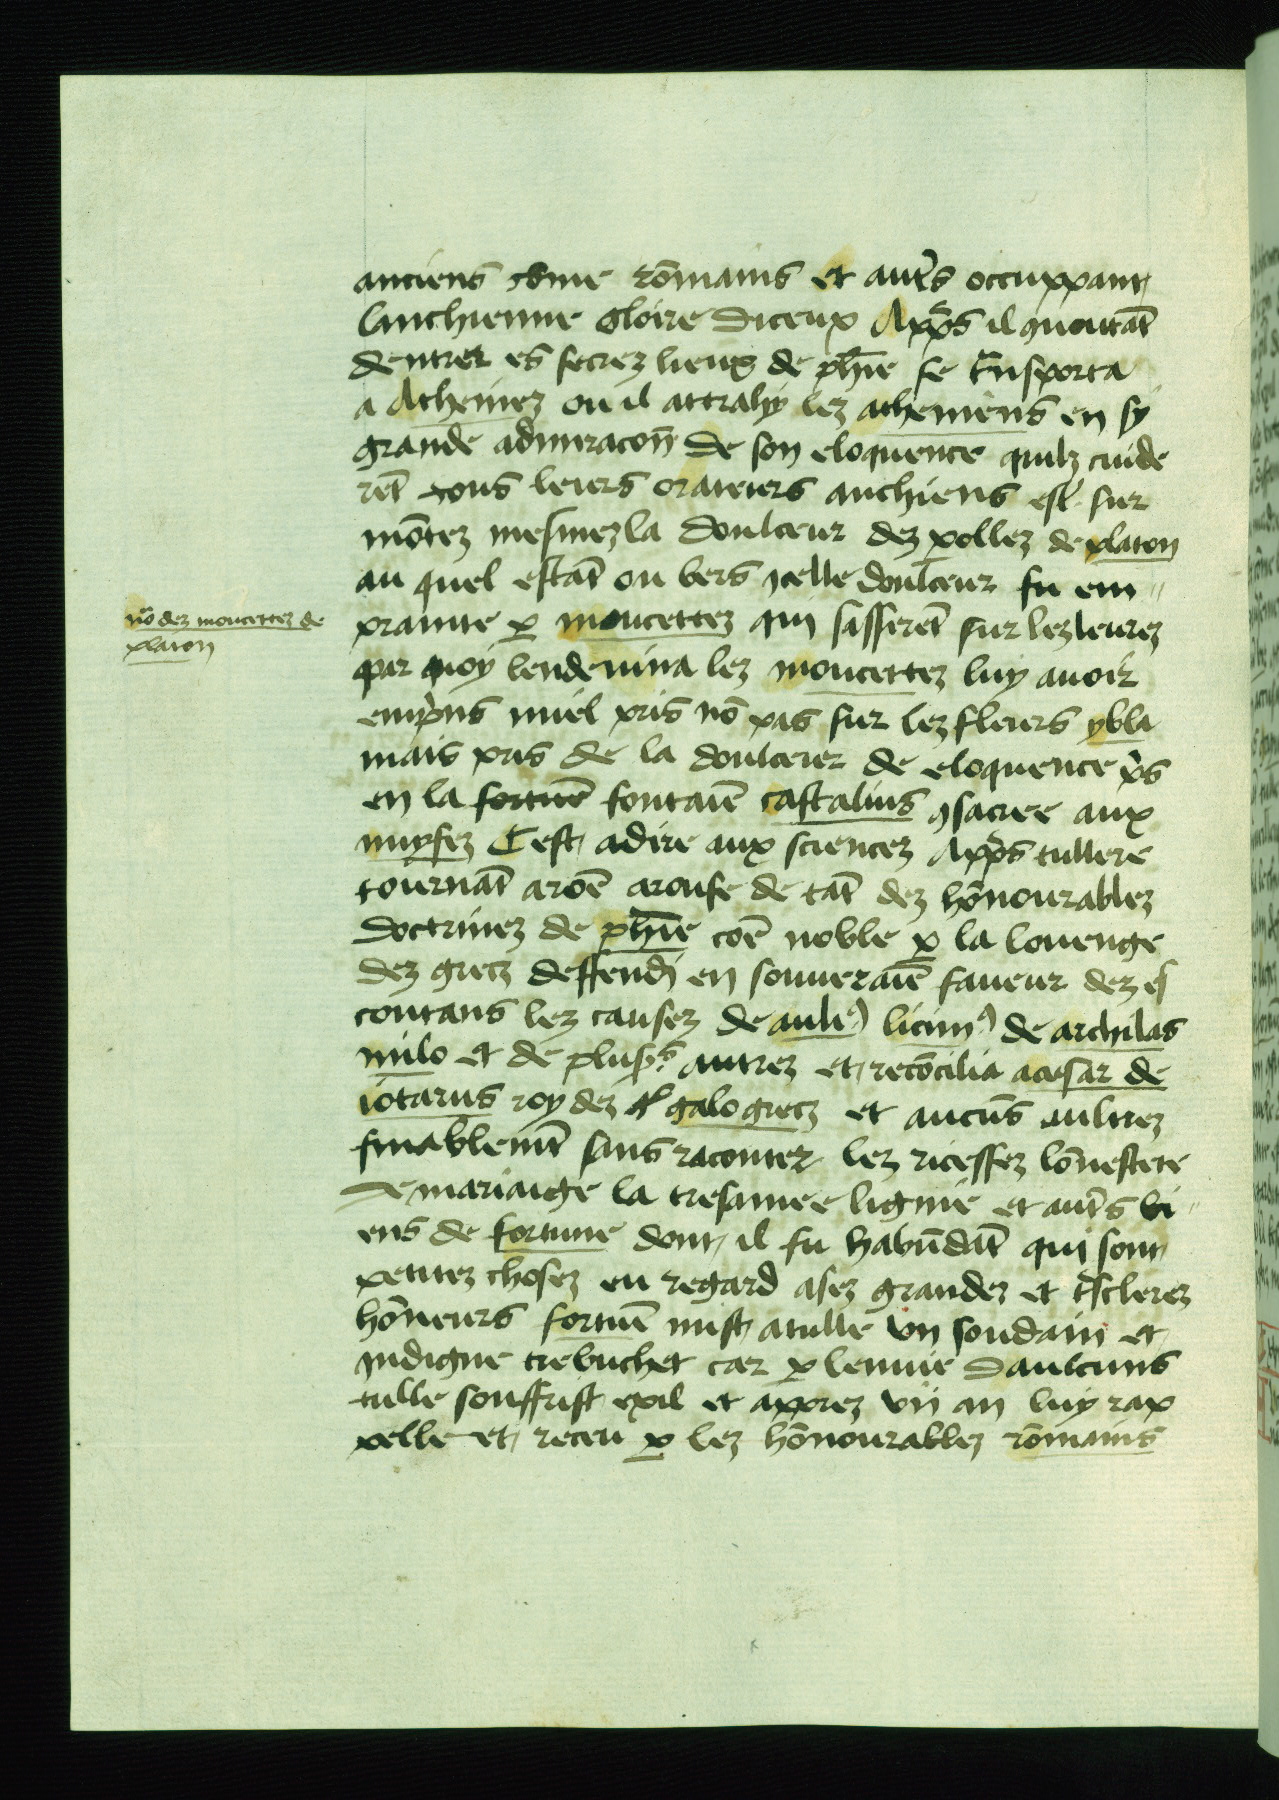 anciens cōme rōmains et aut̄s occuppant
lanchienne gloire diceux App̄s il quoitāt
dentrer es secrez lieux de ph̄ie se t̄nsporta
a Athenez ou il attrahy lez atheniens en sy
grande admiracōn de son eloquence quilz cuide
rēt tous leurs orateurs anchiens est̄ sur
mōtez mesmez la doulceur dez polles de platon
au quel estāt ou bers ycelle doulceur fu em
prainte p moucettez qui sassirēt sur lez leurez
par quoy len devina lez moucettez luy avoir
emp̄ns miel pris nō pas sur lez fleurs ybla
mais pris de la doulceur de eloquence p̄s
en la fortuē fontaiē castalius ɔsacree aux
muysez Cest adire aux sciencez App̄s tulle re
tournāt arōe arouse de tāt dez hōnourablez
doctrinez de ph̄ie cōe noble p la louenge
dez grecz deffendi en souveraiē faveur dez es
coutans lez causez de auleꝯ liciniꝯ de archilas
milo et de pluss̄ autrez et recōcilia acesar de
iotarus roy dez galo grecz et aucūs aultrez
finablemēt sans raconter lez ricessez lōnestete
de mariaige la tresamee lignie et aut̄s bi
ens de fortune dont il fu habūdāt qui sont
petitez chosez en regard asez grandez et t̄sclerez
hōneurs fortuē mist atulle un soudain et
indigne trebuchet car p lenvie daulcuns
tulle souffrist exil et apprez un an luy rap
pelle et receu p lez hōnourablez rōmains
nō dez moucettez de
platon